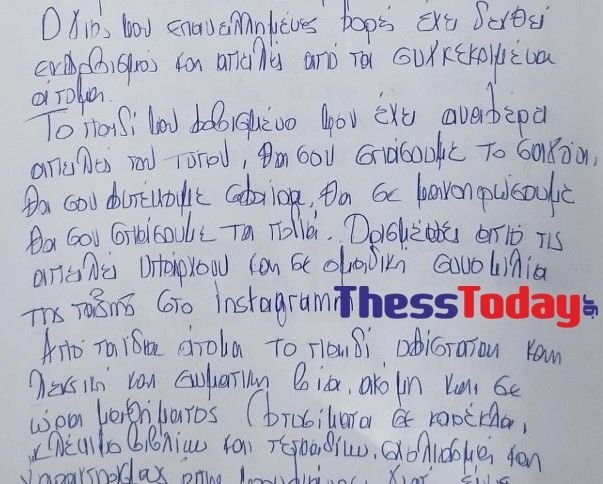 Ο γιος μου επανειλημμένες φορές έχει δεχθεί
εκφοβισμούς και απειλές από τα συγκεκριμένα
άτομα.
Το παιδί μου φοβισμένο μου έχει αναφέρει
απειλές του τύπου, θα σου σπάσουμε το σαγόνι,
θα σου φυτέψουμε σφαίρα, θα σε μαχαιρώσουμε
θα σου σπάσουμε τα πόδια. Ορισμένες από τις
απειλές υπάρχουν και σε ομαδική συνομιλία
της τάξης στο Instagramm
ThessToday.gr
Από τα ίδια άτομα το παιδί υφίσταται και
λεκτική και σωματική βία, ακόμη και σε
ώρα μαθήματος (φτυσίματα σε καρέκλα,
βιβλίων και τετραδίων, σχολιασμοί και